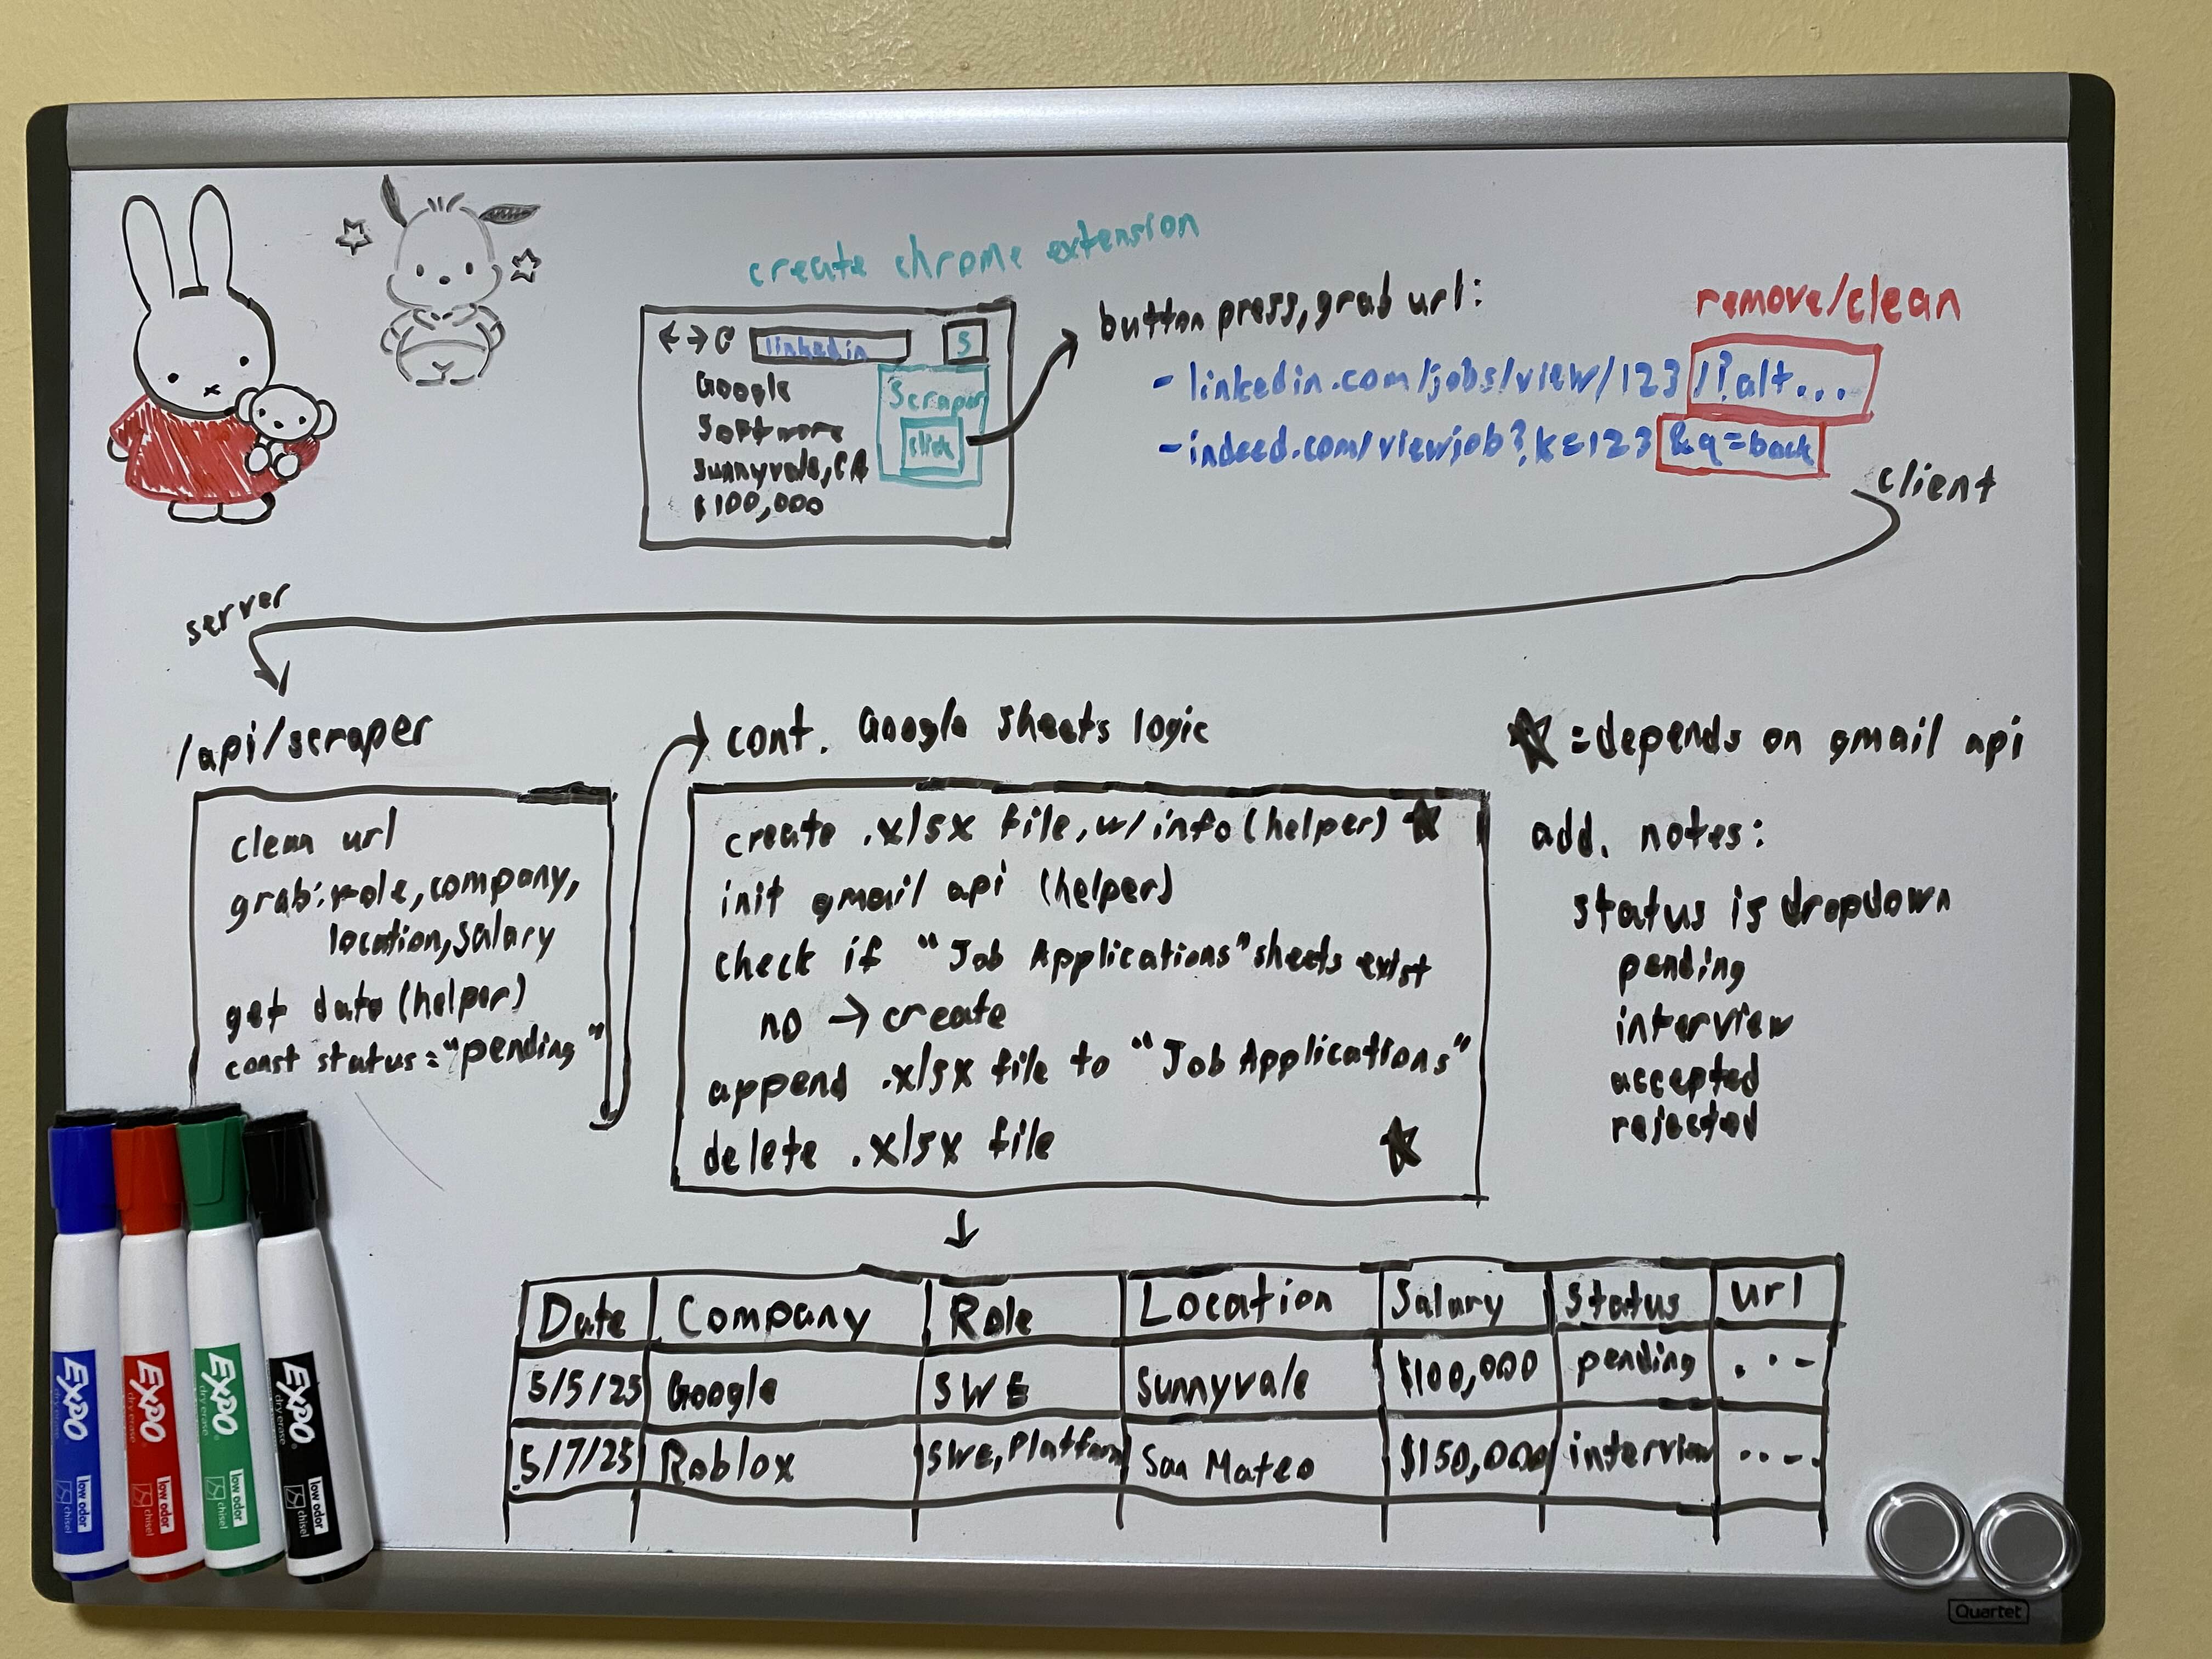 create chrome extension
← → C linkedin S
Google
Software
Sunnyvale, CA
$100,000
Scraper
click
button press, grab url:
remove/clean
- linkedin.com/jobs/view/123/?alt...
- indeed.com/viewjob?k=123&q=back
client
server
/api/scraper
clean url
grab: role, company,
location, salary
get date (helper)
const status = "pending"
cont. Google Sheets logic
create .xlsx file, w/ info (helper) ★
init gmail api (helper)
check if "Job Applications" sheets exist
no → create
append .xlsx file to "Job Applications"
delete .xlsx file ★
★ = depends on gmail api
add. notes:
status is dropdown
pending
interview
accepted
rejected
Date Company Role Location Salary Status url
5/5/25 Google SWE Sunnyvale $100,000 pending ...
5/7/25 Roblox SWE, Platform San Mateo $150,000 interview ....
EXPO dry erase low odor chisel
EXPO dry erase low odor chisel
EXPO dry erase low odor chisel
EXPO dry erase low odor chisel
Quartet